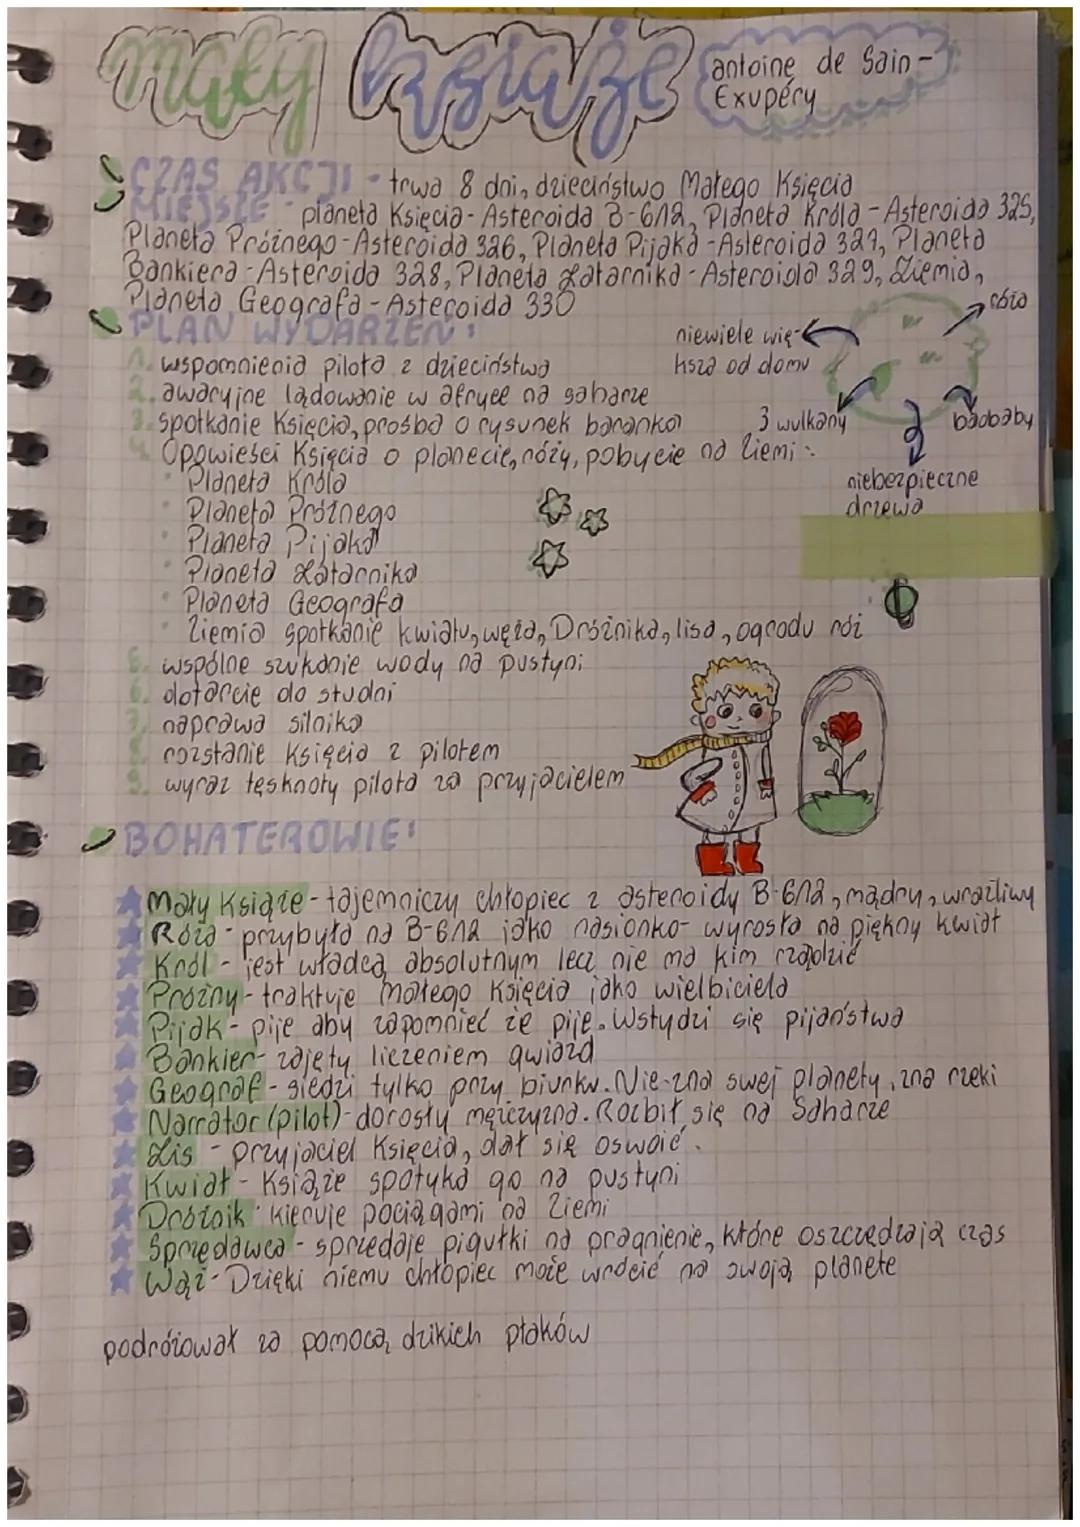 mały książę
antoine de Sain-
Exupéry
CZAS AKCJI - trwa 8 dni, dzieciństwo Małego Księcia
MIEJSCE - planeta Księcia - Asteroida B-612, Planeta Króla - Asteroida 325,
Planeta Próżnego - Asteroida 326, Planeta Pijaka - Asteroida 327, Planeta
Bankiera - Asteroida 328, Planeta Latarnika - Asteroida 329, Ziemia,
Planeta Geografa - Asteroida 330
PLAN WYDARZEŃ:
niewiele wię-
ksza od domu
róża
3 wulkany
baobaby
niebezpieczne
drzewa
1. wspomnienia pilota z dzieciństwa
2. awaryjne lądowanie w afryce na saharze
3. spotkanie Księcia, prośba o rysunek baranka
4. Opowieści Księcia o planecie, róży, pobycie na Ziemi:
• Planeta Króla
• Planeta Próżnego
• Planeta Pijaka
• Planeta Latarnika
• Planeta Geografa
• Ziemia spotkanie kwiatu, węża, Dróżnika, lisa, ogrodu róż
5. wspólne szukanie wody na pustyni
6. dotarcie do studni
7. naprawa silnika
8. rozstanie Księcia z pilotem
9. wyraz tęsknoty pilota za przyjacielem
BOHATEROWIE:
Mały Książe - tajemniczy chłopiec z asteroidy B-612, mądry, wrażliwy
Róża - przybyła na B-612 jako nasionko - wyrosła na piękny kwiat
Król - jest władcą absolutnym lecz nie ma kim rządzić
Próżny - traktuje małego Księcia jako wielbiciela
Pijak - pije aby zapomnieć że pije. Wstydzi się pijaństwa
Bankier - zajęty liczeniem gwiazd
Geograf - siedzi tylko przy biurku. Nie zna swej planety, zna rzeki
Narrator (pilot) - dorosły mężczyzna. Rozbił się na Saharze
Lis - przyjaciel Księcia, dał się oswoić.
Kwiat - Książe spotyka go na pustyni
Dróżnik kieruje pociągami na Ziemi
Sprzedawca - sprzedaje pigułki na pragnienie, które oszczędzają czas
Wąż - Dzięki niemu chłopiec może wrócić na swoją planete
podróżował za pomocą dzikich ptaków